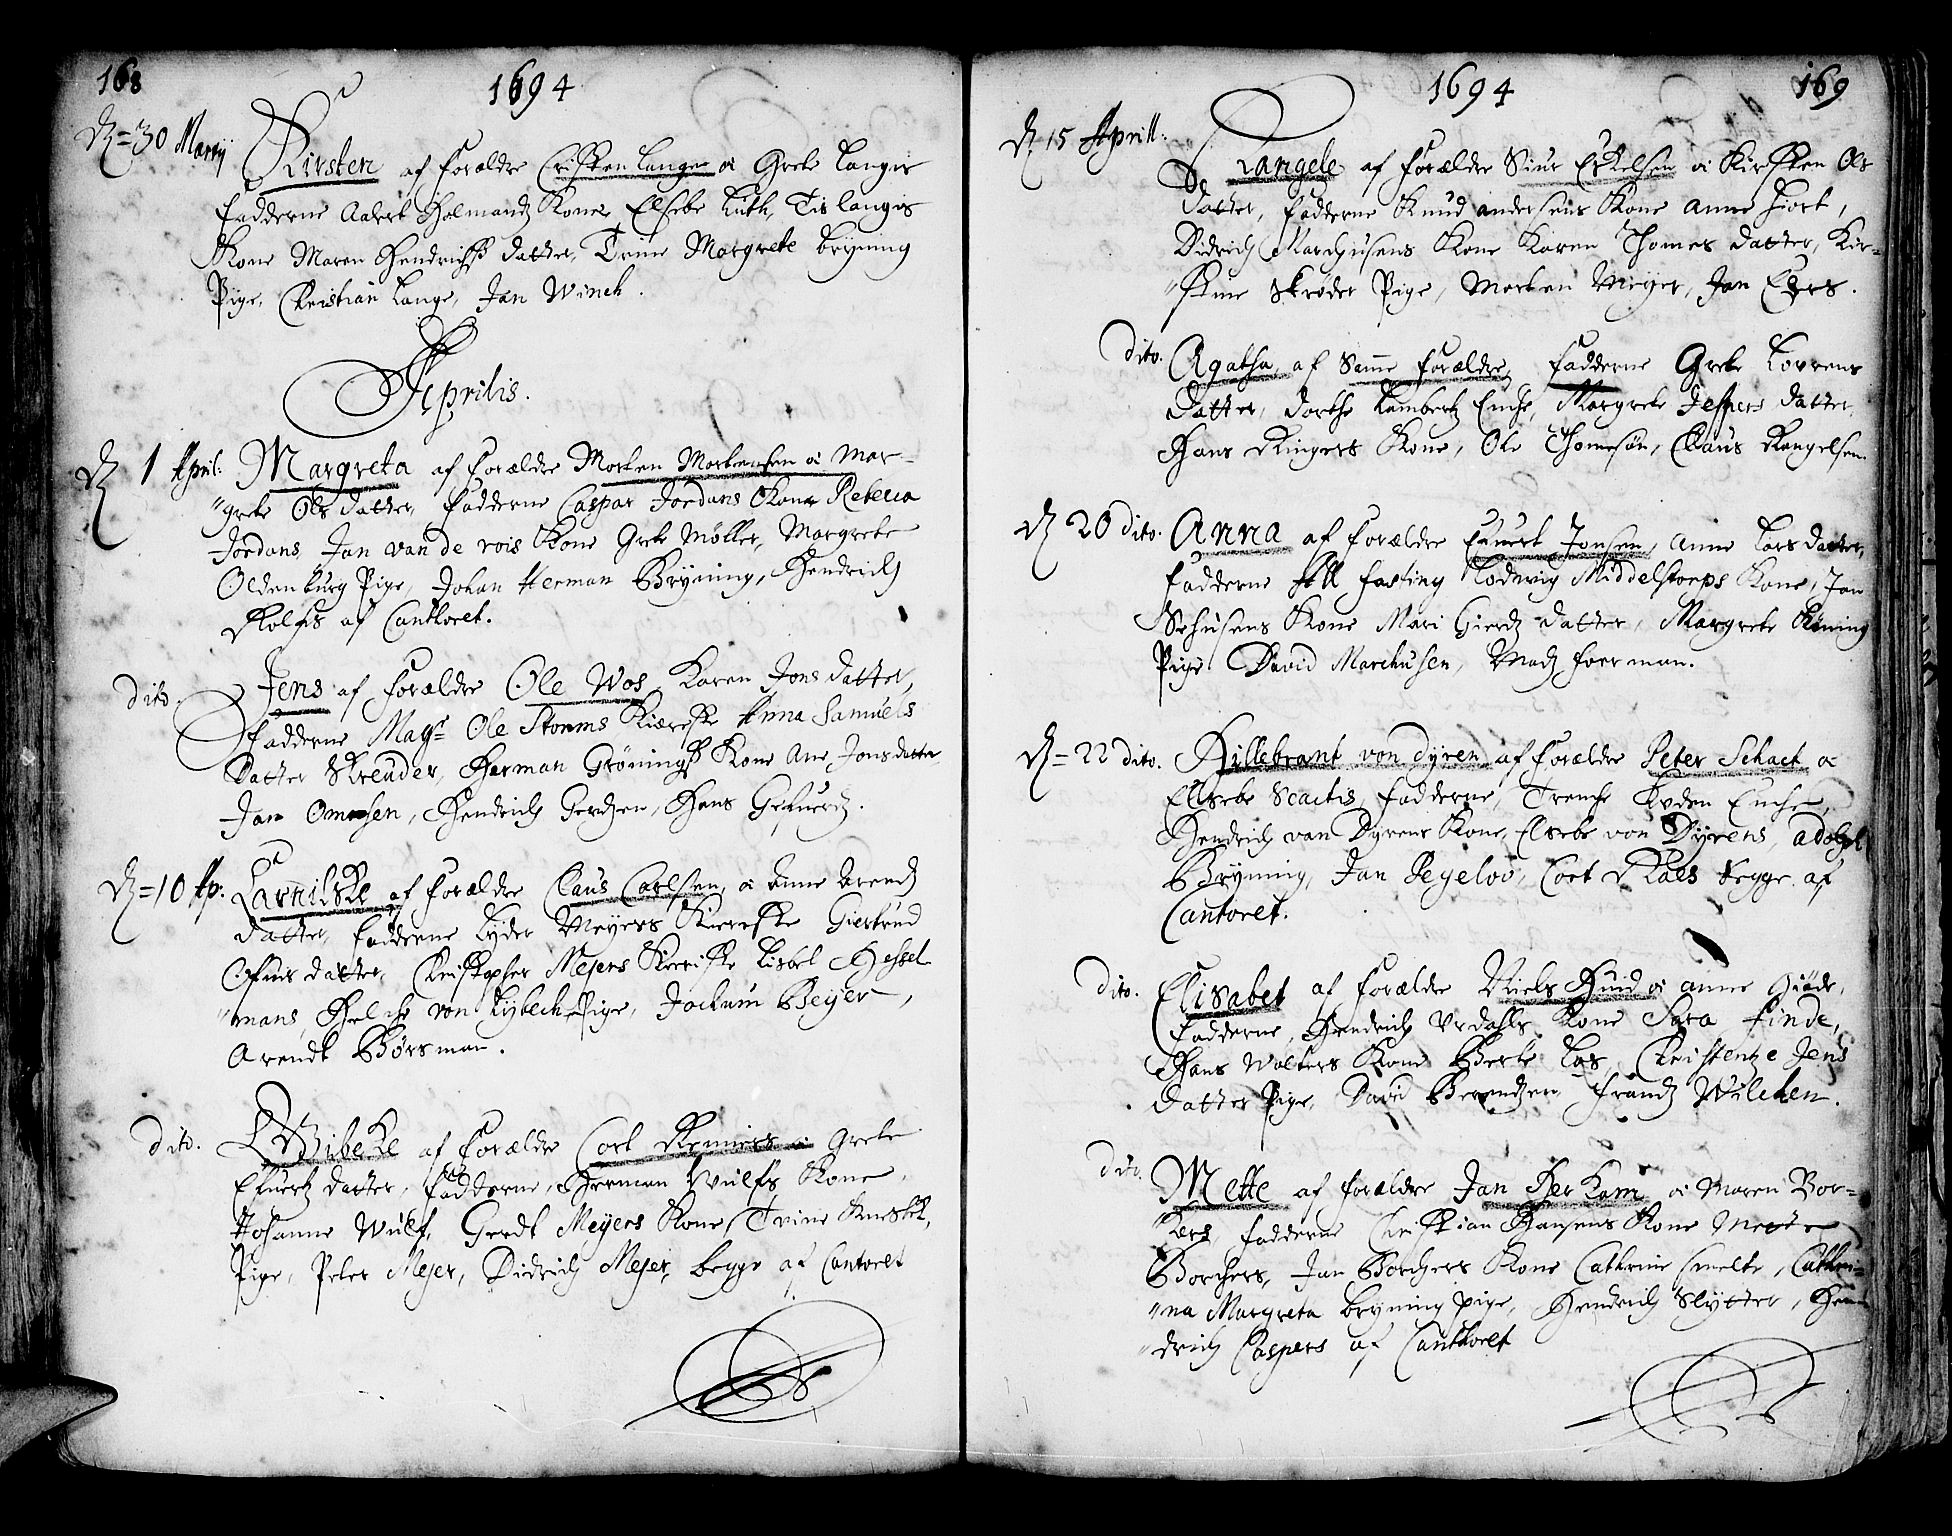 168
1694
D. 30 Martij
Kirsten af forældre Cristen Lange oc Grete Langis
fadderne Advert Holmandz Kone Elsebe Luth, Tis Langes
Kone Maren Hendrichs datter, Trine Margrete Bryning
Pige, Christian Lange, Jan Winch.
Aprilis.
D. 1 April:
Margreta af forældre Morten Mortensen oc Mar-
"grete Ols datter, fadderne Caspar Jordans Kone Rebecca
Jordans, Jan van de rois Kone Grete Møller, Margrete
Oldenburg Pige, Johan Herman Bryning, Hendrich
Rolfs af Cantoret.
dito.
Jens af forældre Ole Wos Karen Jons datter,
fadderne Magr Ole Storms Kiereste Anna Samuels
Datter Skreuder, Herman Grønings Kone Ane Jonsdatter
Jan Omesen, Hendrich Gertzen, Hans Gefuerdz.
D. 10 Ap:
Carnilske af forældre Claus Carlsen oc Anne Arendz
datter, fadderne Lyder Meyers Kiereste Giertrud
datter, Christopher Mejers Kiereste Lisbet Hessel
"mans, Helche von Lybech Pige, Jochum Beyer,
Arendt Børsman.
dito.
Wibeke af forældre Cort Remiers oc Grete
Efuertz datter, fadderne, Herman Wulfs Kone
Johanne Wulf, Gerdt Meyers Kone Trine
Pige, Peter Mejer, Didrich Mejer, begge af Cantoret
1694
169
D. 15 Aprill:
Langele af forældre Siur Eskelsen oc Kirsten Ols
datter, fadderne Knud Andersens Kone Anne Hiort,
Didrich Marchusens Kone Karen Thomes datter, Kir-
"stine Skrøder Pige, Morten Meyer, Jan Evers.
dito.
Agatha af Samme forældre, fadderne Grete Lorrens
datter, Dorthe Lambertz Enche, Margrete Jespers datter,
Hans Ringers Kone, Ole Thomesøn, Claus Rangelsen
D 20 dito.
Anna af forældre Efuert Jonsen, Anne Lars datter,
fadderne All Fasting Lodewig Middelstorps Kone, Jan
Sehusens Kone Mari Gierdz datter, Margrete Køning
Pige David Marchusen, Madz foerman.
D. 22 dito.
Hillebrant von Dyren af forældre Peter Schact oc
Elsebe Scactis, fadderne, Trenche Luden Enche,
Hendrich van Dyrens Kone, Elsebe von Dyrens, Adolph
Bryning, Jan Pegelov, Cort Klaes begge af
Cantoret.
dito.
Elisabet af forældre Niels Huid oc Anne Giøde,
fadderne, Hendrich Urdahls Kone Sara Finde,
Hans Wolters Kone Berte Las, Christentze Jens
datter Pige, David Berendtzen, Frandz Wilcken.
dito.
Mette af forældre Jan Herkam oc Maren Bor-
"kers, fadderne Christian Hansens Kone Mette
Borchers, Jan Borchers Kone Cathrine Smelte, Cathri-
"na Margreta Bryning Pige, Hendrich Slytter, Hen
"drich Caspers af Cantoret